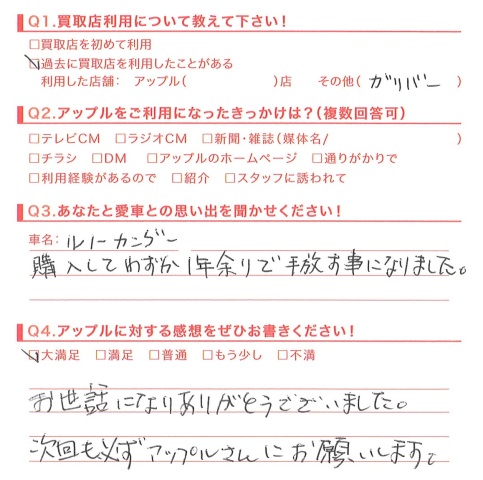 Q1.買取店利用について教えて下さい!
□買取店を初めて利用
☑過去に買取店を利用したことがある
利用した店舗： アップル( )店 その他( ガリバー )
Q2.アップルをご利用になったきっかけは？(複数回答可)
□テレビCM □ラジオCM □新聞・雑誌(媒体名/ )
□チラシ □DM □アップルのホームページ □通りがかりで
□利用経験があるので □紹介 □スタッフに誘われて
Q3.あなたと愛車との思い出を聞かせください!
車名： ルノーカングー
購入してわずか1年余りで手放す事になりました。
Q4.アップルに対する感想をぜひお書きください!
☑大満足 □満足 □普通 □もう少し □不満
お世話になりありがとうございました。
次回も必ずアップルさんにお願いします。